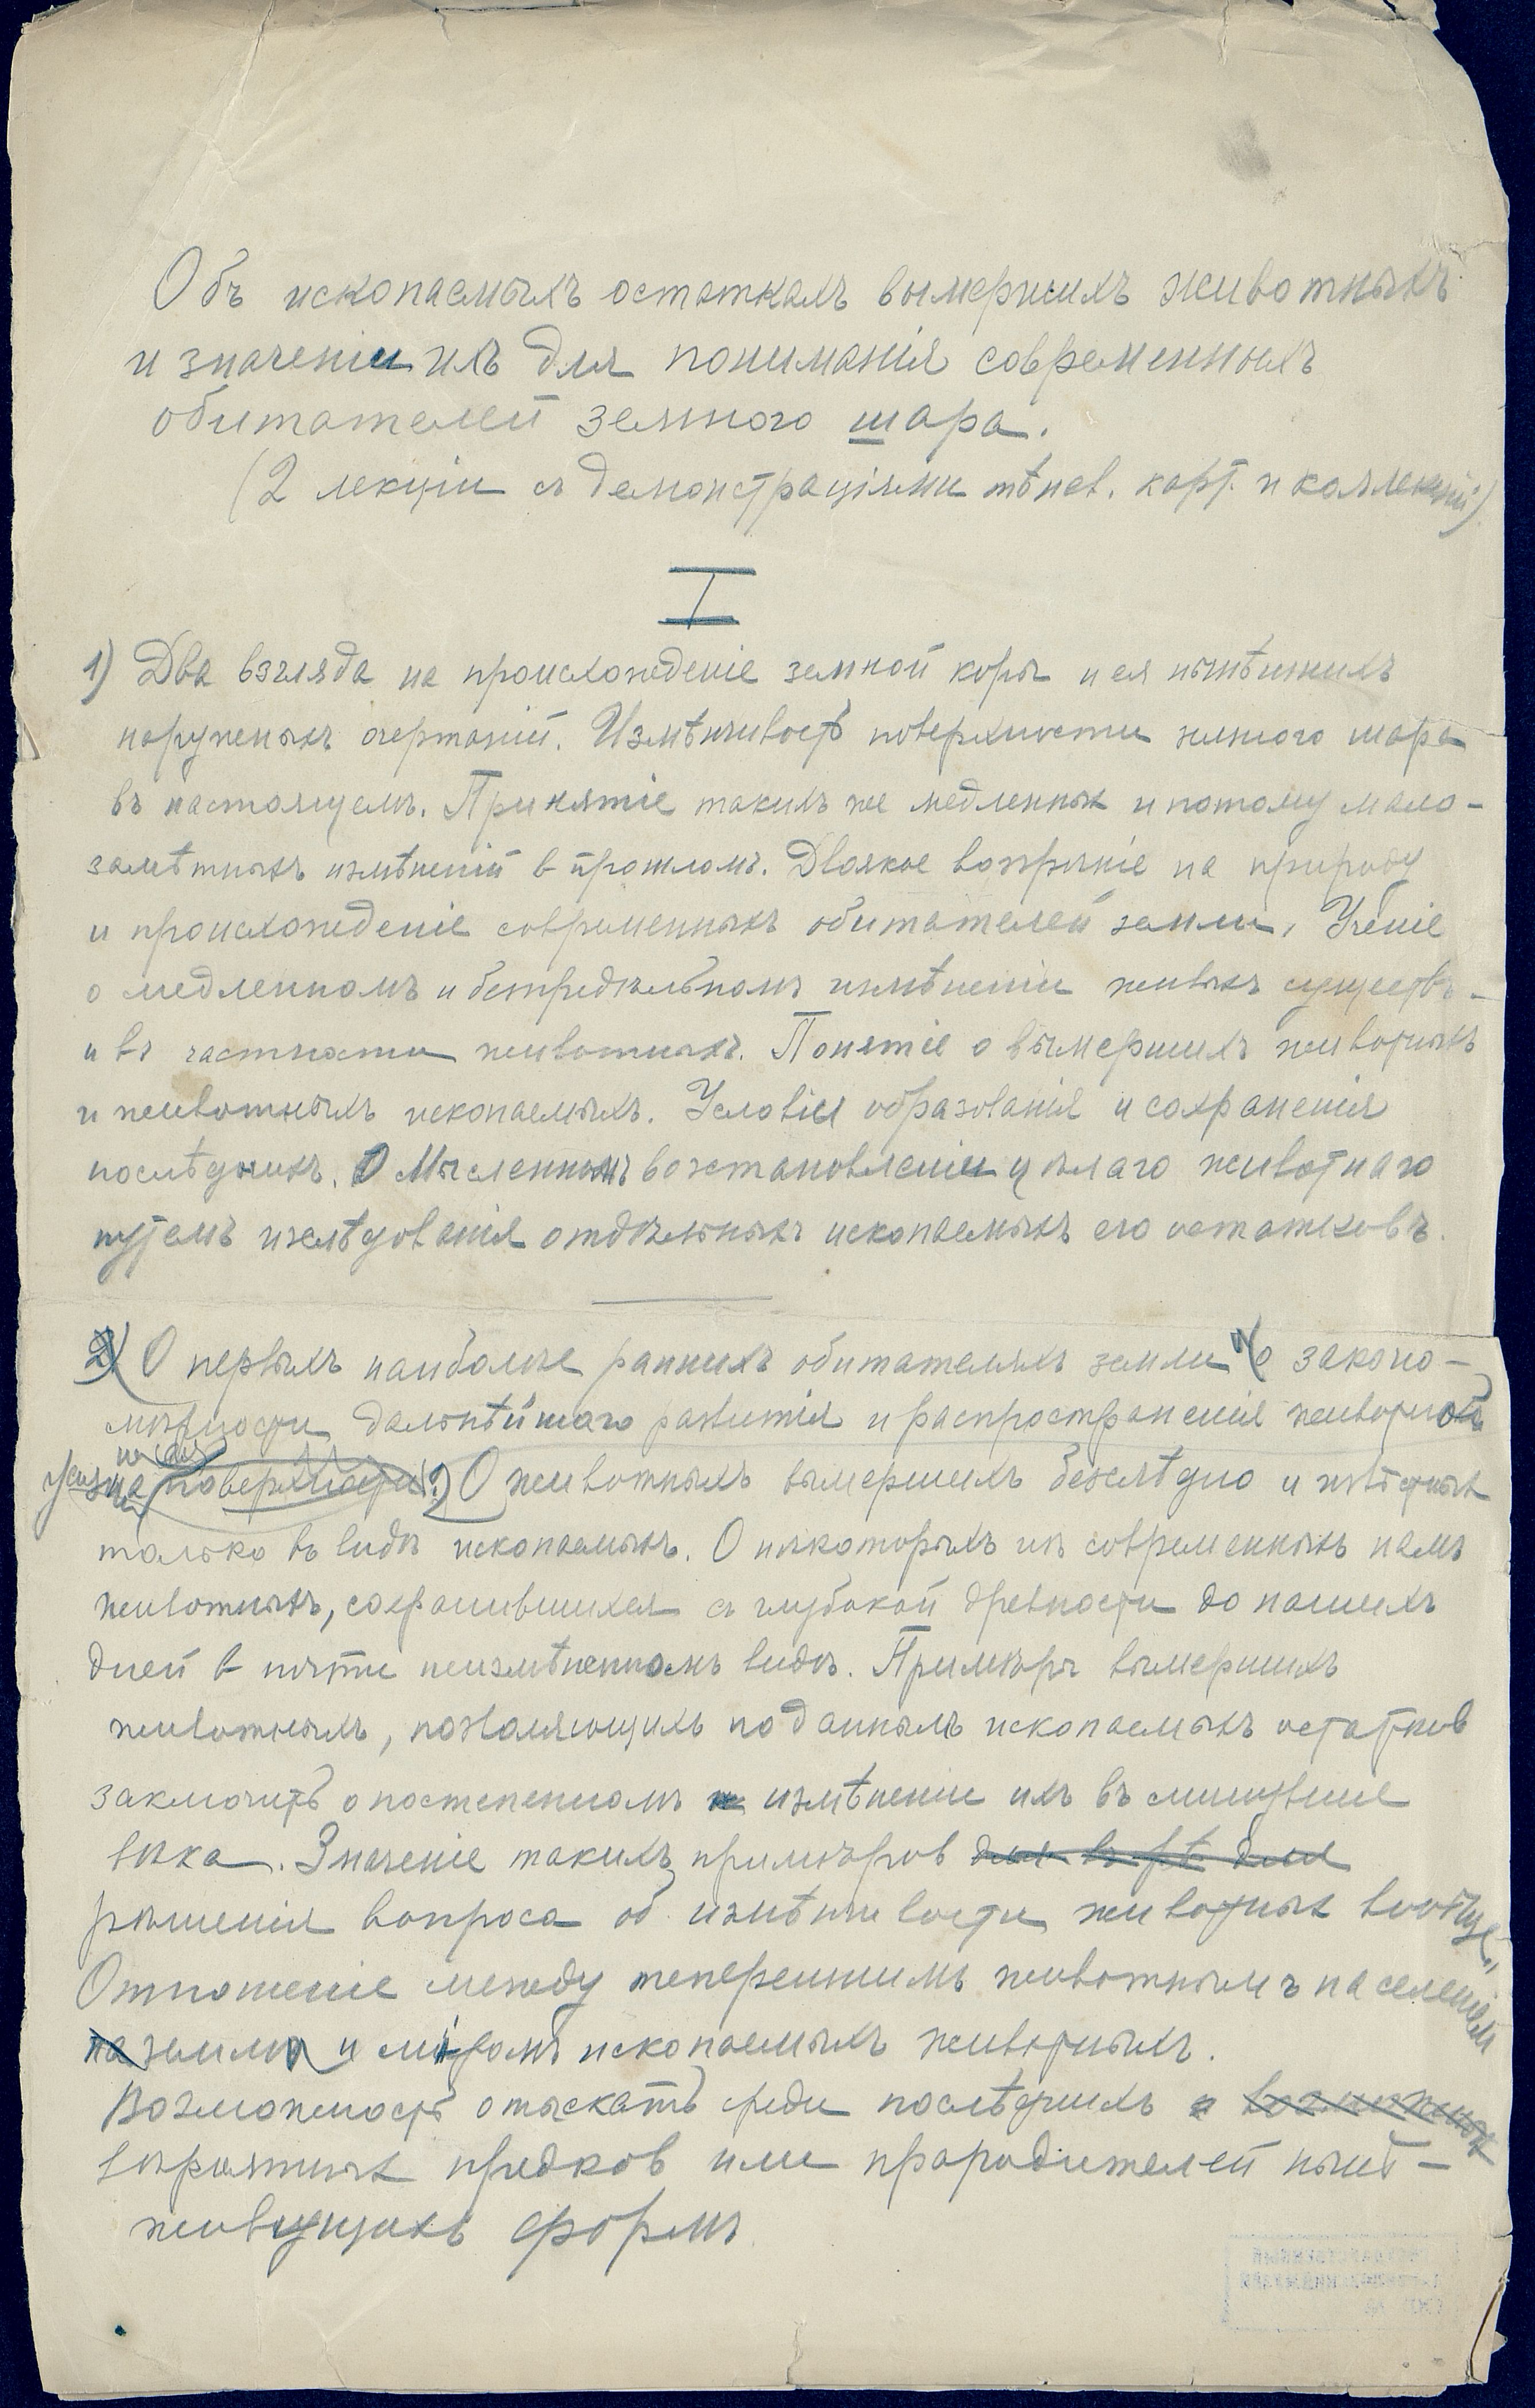 Объ ископаемыхъ остаткахъ вымершихъ животныхъ
и значеніи ихъ для пониманія современныхъ
обитателей земного шара.
(2 лекціи съ демонстраціями тѣнев. карт. и коллекцій)
I
1) Два взгляда на происхожденіе земной коры и ея нынѣшнихъ
наружныхъ очертаній. Измѣнчивость поверхности земного шара
въ настоящемъ. Принятіе такихъ же медленныхъ и потому мало-
замѣтныхъ измѣненій в прошломъ. Двоякое воззрѣніе на природу
и происхожденіе современныхъ обитателей земли. Ученіе
о медленномъ и безпредѣльномъ измѣненіи живыхъ существъ -
и въ частности животныхъ. Понятіе о вымершихъ животныхъ
и животныхъ ископаемыхъ. Условія образованія и сохраненія
послѣднихъ. О мысленномъ возстановленіи цѣлаго животнаго
путемъ изслѣдованія отдѣльныхъ ископаемыхъ его остатковъ.
2) О первыхъ наиболѣе раннихъ обитателяхъ земли и о законо-
мѣрности дальнѣйшаго развитія и распространенія животной
жизни на поверхности 2) О животныхъ вымершихъ безслѣдно и извѣстныхъ
только въ видѣ ископаемыхъ. О нѣкоторыхъ изъ современныхъ намъ
животныхъ, сохранившихся съ глубокой древности до нашихъ
дней в почти неизмѣненномъ видѣ. Примѣры вымершихъ
животныхъ, позволяющихъ по даннымъ ископаемыхъ остатков
заключить о постепенномъ измѣненіи ихъ въ минувшіе
вѣка. Значеніе такихъ примѣров для
рѣшенія вопроса об измѣнчивости животных вообще.
Отношеніе между теперешнимъ животнымъ населеніем
земли и міромъ ископаемыхъ животныхъ.
Возможность отыскать среди послѣднихъ
вѣроятных предков или прародителей нынѣ-
живущихъ формъ